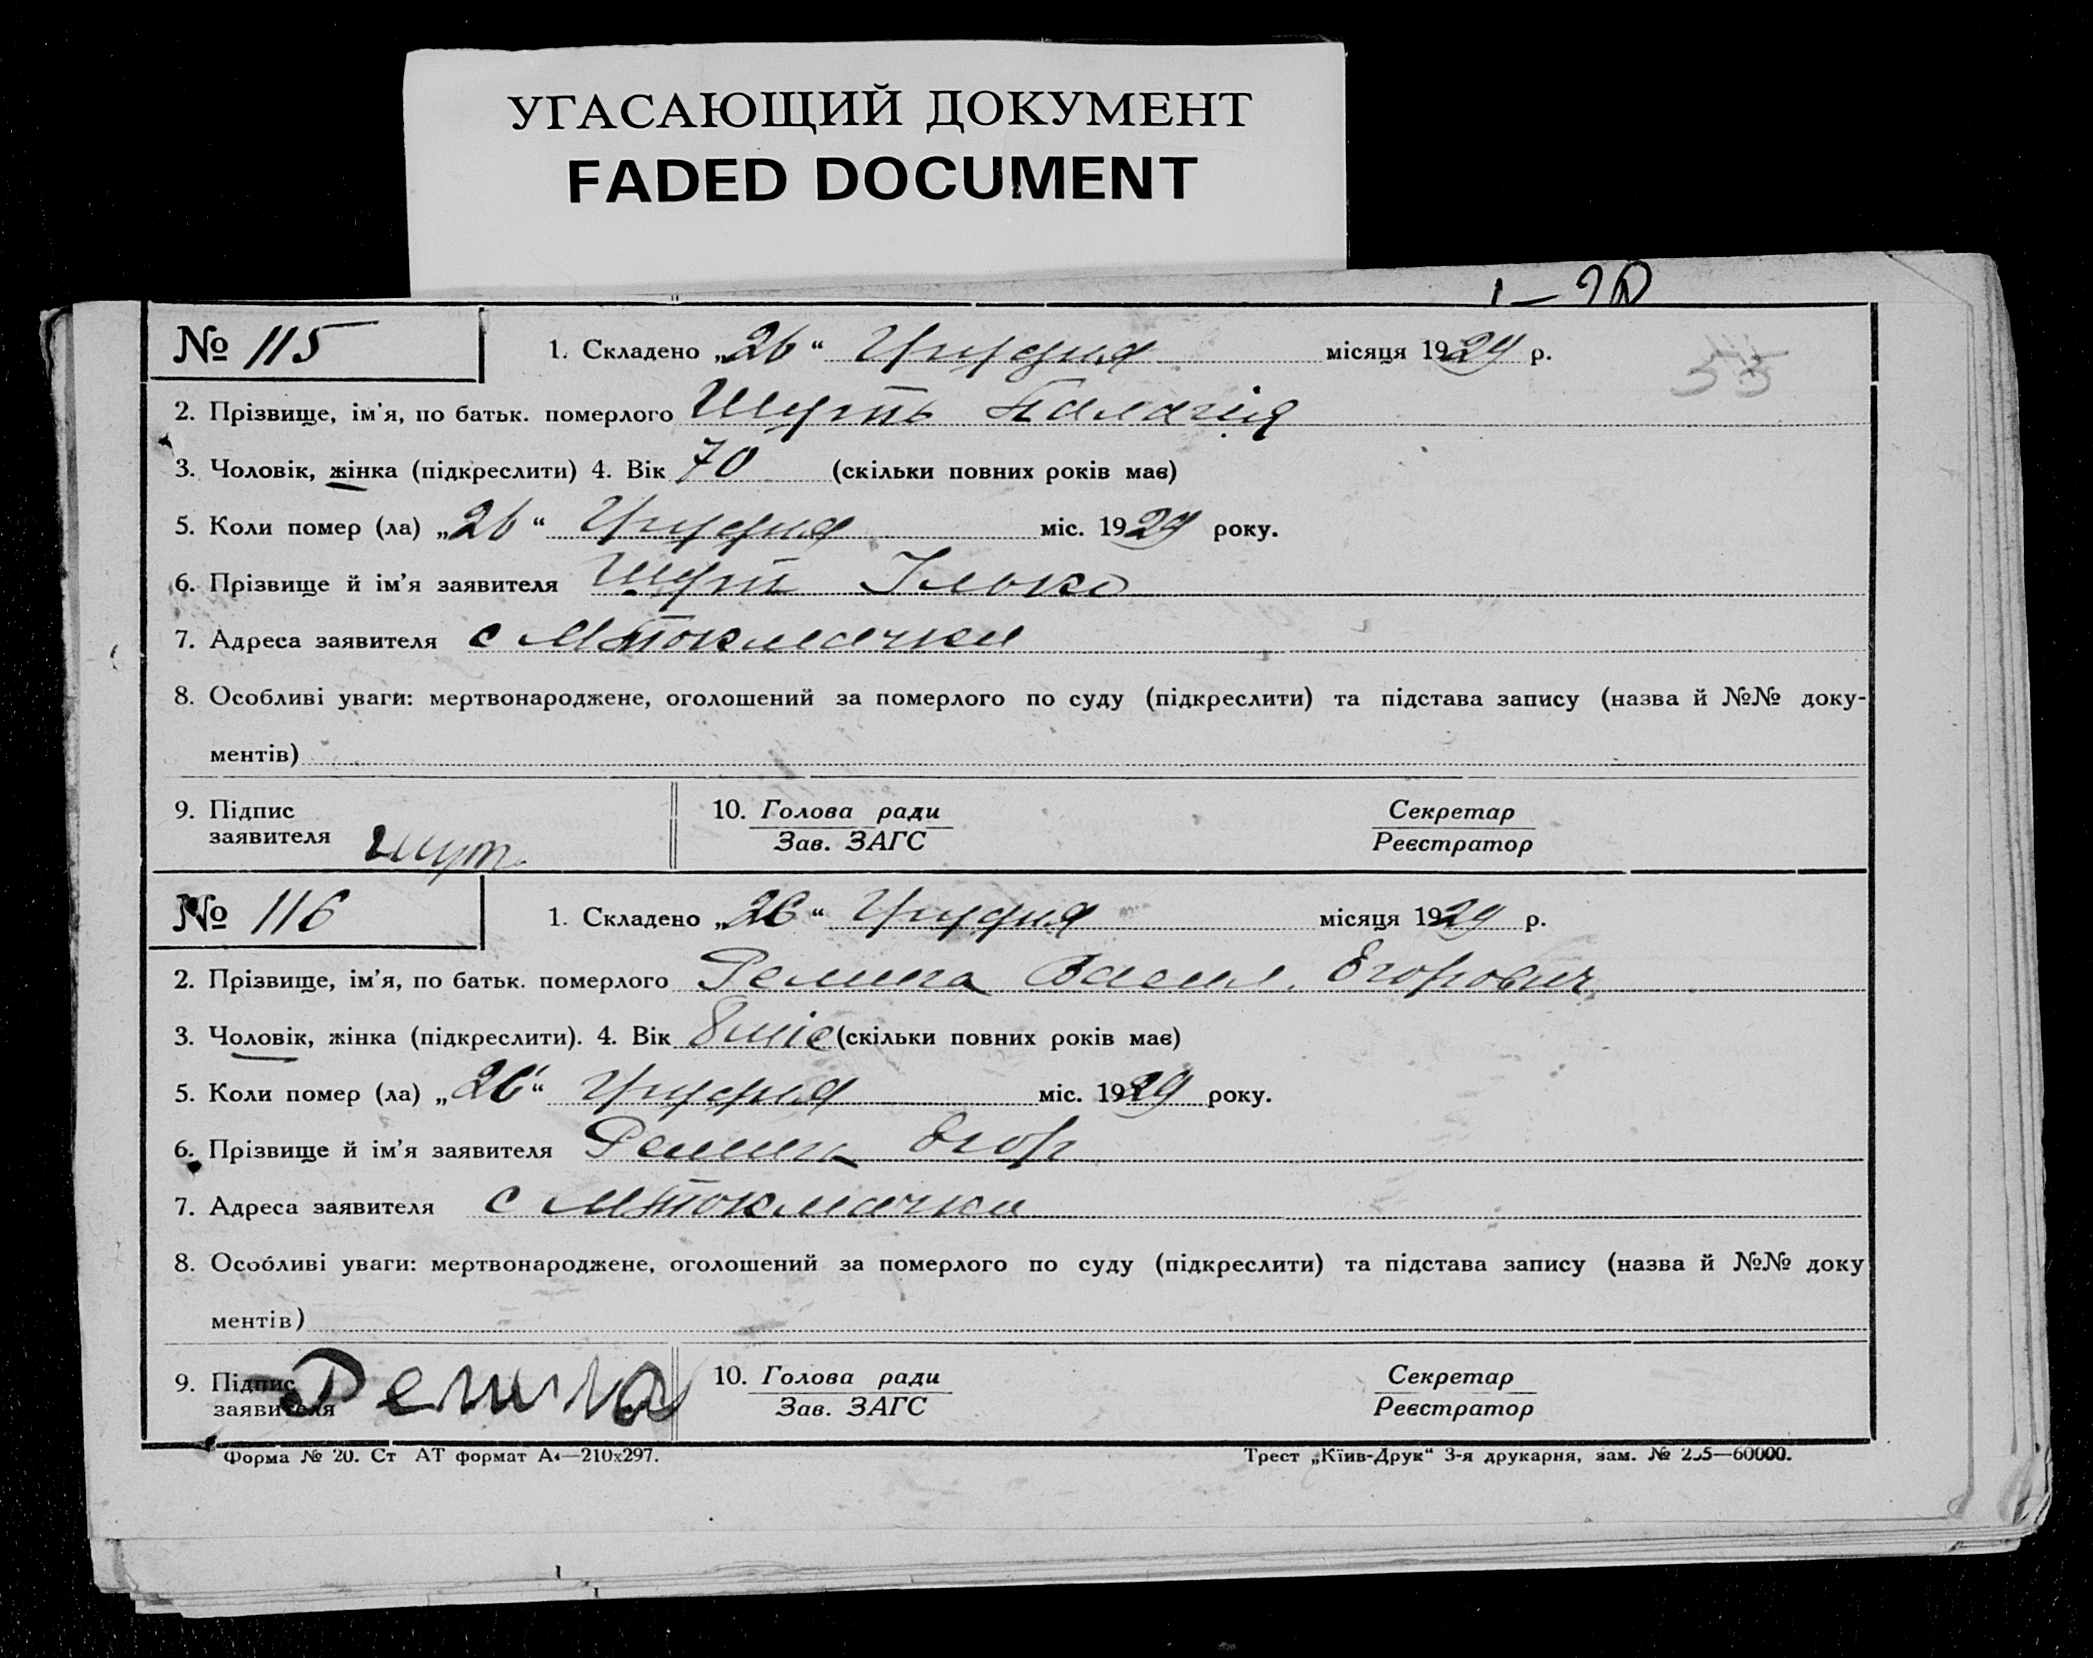 УГАСАЮЩИЙ ДОКУМЕНТ
FADED DOCUMENT
№ 115
1. Складено „26“ Грудня місяця 1929 р.
53
2. Прізвище, ім'я, по батьк. померлого Шуть Палагія
3. Чоловік, жінка (підкреслити) 4. Вік 70 (скільки повних років має)
5. Коли помер (ла) „26“ Грудня міс. 1929 року.
6. Прізвище й ім'я заявителя Шут Ілько
7. Адреса заявителя с МТокмачка
8. Особливі уваги: мертвонароджене, оголошений за померлого по суду (підкреслити) та підстава запису (назва й №№ доку-
ментів)
9. Підпис заявителя Шут
10. Голова ради
Зав. ЗАГС
Секретар
Реєстратор
№ 116
1. Складено „26“ Грудня місяця 1929 р.
2. Прізвище, ім'я, по батьк. померлого Репина Васил. Егорович
3. Чоловік, жінка (підкреслити). 4. Вік 8 міс (скільки повних років має)
5. Коли помер (ла) „26“ Грудня міс. 1929 року.
6. Прізвище й ім'я заявителя Егор
7. Адреса заявителя с МТокмачка
8. Особливі уваги: мертвонароджене, оголошений за померлого по суду (підкреслити) та підстава запису (назва й №№ доку
ментів)
9. Підпис заявителя
10. Голова ради
Зав. ЗАГС
Секретар
Реєстратор
Форма № 20. Ст АТ формат А4—210х297.
Трест „Київ-Друк“ 3-я друкарня, зам. № —60000.